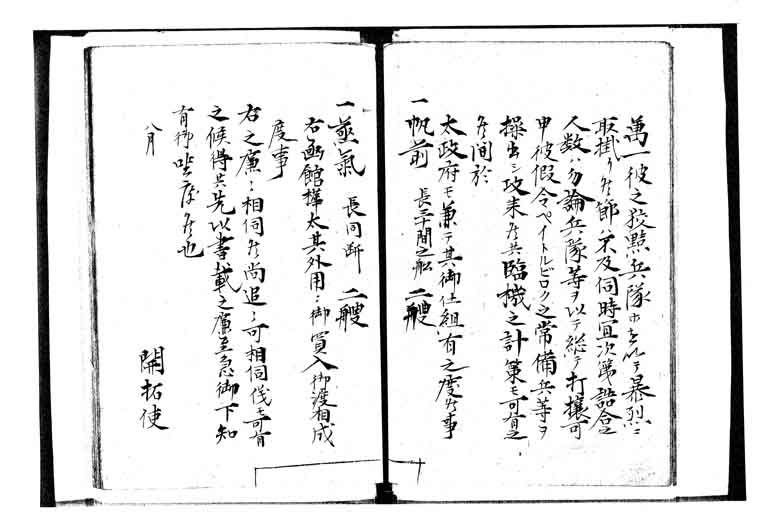 萬一彼之狡黠兵隊ホヲ以テ暴烈ニ
取掛リ候節ハ不及伺時宜次第詰合之
人数ハ勿論兵隊等ヲ以テ総テ打攘可
申彼假令ペイトルビロク之常備兵等ヲ
操出シ攻来候共臨機之計策モ可有之
候間於
太政府モ兼テ其御仕組有之度候事
一帆前 長三十間之舩 二艘
一蒸氣 長同断 二艘
右函館樺太其外用ニ御買入御渡相成
度事
右之廉ニ相伺候尚追ニ可相伺儀モ可有
之候得共先以書載之廉至急御下知
有御坐度候也
八月
開拓使